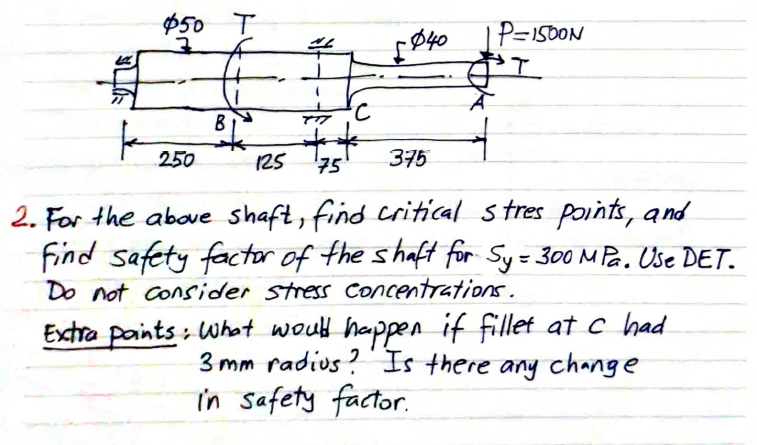 φ50 T φ40 P=1500N
T
B C A
250 125 75 375
2. For the above shaft, find critical stres points, and
find safety factor of the shaft for Sy = 300 MPa. Use DET.
Do not consider stress concentrations.
Extra points: What would happen if fillet at C had
3 mm radius? Is there any change
in safety factor.